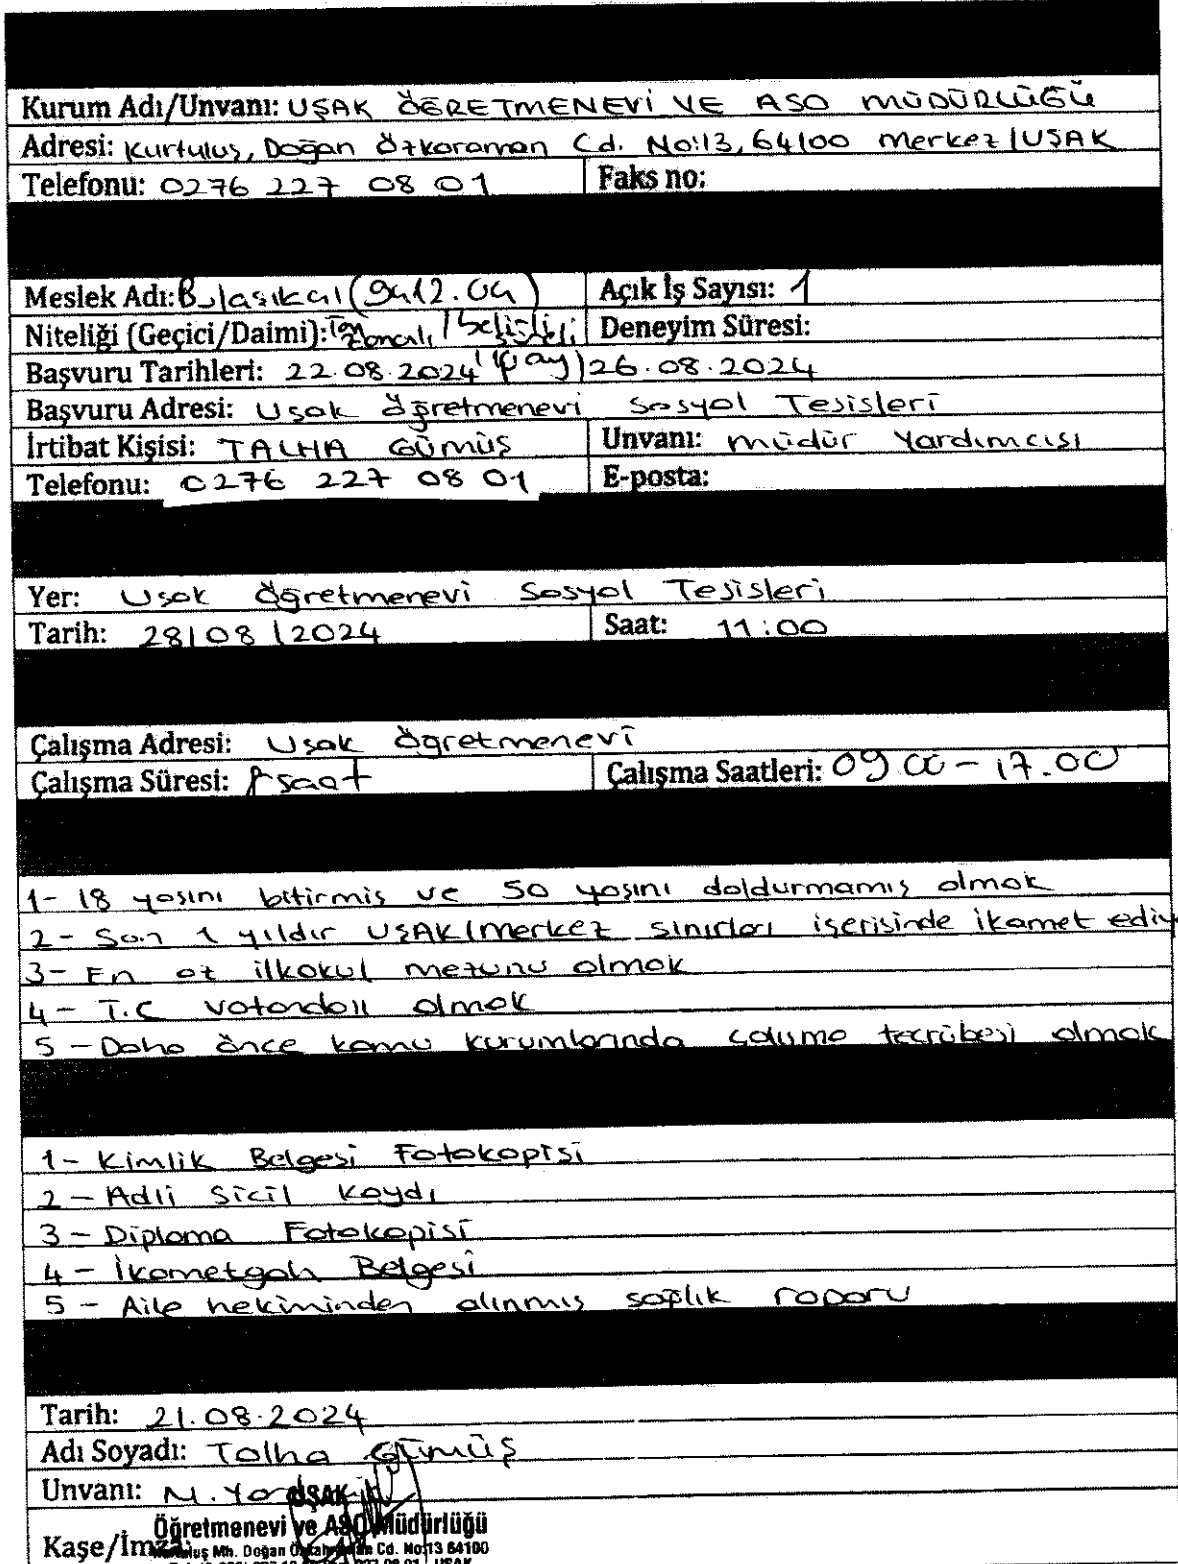 Kurum Adı/Unvanı: UŞAK ÖĞRETMENEVİ VE ASO MÜDÜRLÜĞÜ
Adresi: Kurtuluş, Doğan Özkaraman Cd. No:13, 64100 Merkez/UŞAK
Telefonu: 0276 227 08 01 Faks no:
Meslek Adı: Bulaşıkçı (9412.04) Açık İş Sayısı: 1
Niteliği (Geçici/Daimi): Tam Zamanlı / belirsiz Deneyim Süresi:
Başvuru Tarihleri: 22.08.2024 26.08.2024
Başvuru Adresi: Uşak Öğretmenevi Sosyal Tesisleri
İrtibat Kişisi: TALHA GÜMÜŞ Unvanı: Müdür Yardımcısı
Telefonu: 0276 227 08 01 E-posta:
Yer: Uşak Öğretmenevi Sosyal Tesisleri
Tarih: 28/08/2024 Saat: 11:00
Çalışma Adresi: Uşak Öğretmenevi
Çalışma Süresi: 8 saat Çalışma Saatleri: 09.00 - 17.00
1- 18 yaşını bitirmiş ve 50 yaşını doldurmamış olmak
2- Son 1 yıldır UŞAK/Merkez sınırları içerisinde ikamet ediy
3- En az ilkokul mezunu olmak
4- T.C vatandaşı olmak
5- Daha önce kamu kurumlarında çalışma tecrübesi olmak
1- Kimlik Belgesi Fotokopisi
2- Adli Sicil Kaydı
3- Diploma Fotokopisi
4- İkametgah Belgesi
5- Aile hekiminden alınmış sağlık raporu
Tarih: 21.08.2024
Adı Soyadı: Talha Gümüş
Unvanı: M. Yard
UŞAK
Öğretmenevi ve ASO Müdürlüğü
Kaşe/İmza:
Mh. Doğan Cd. No:13 64100
UŞAK